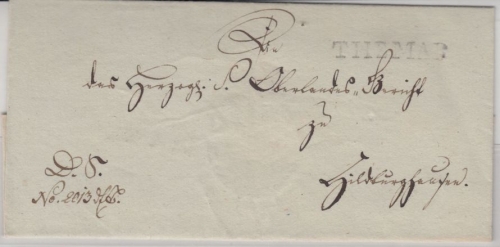 An
THEMAR
das Herzogl. S. Oberlandes-Gericht
zu
Hildburghausen.
D. S.
No. 2013